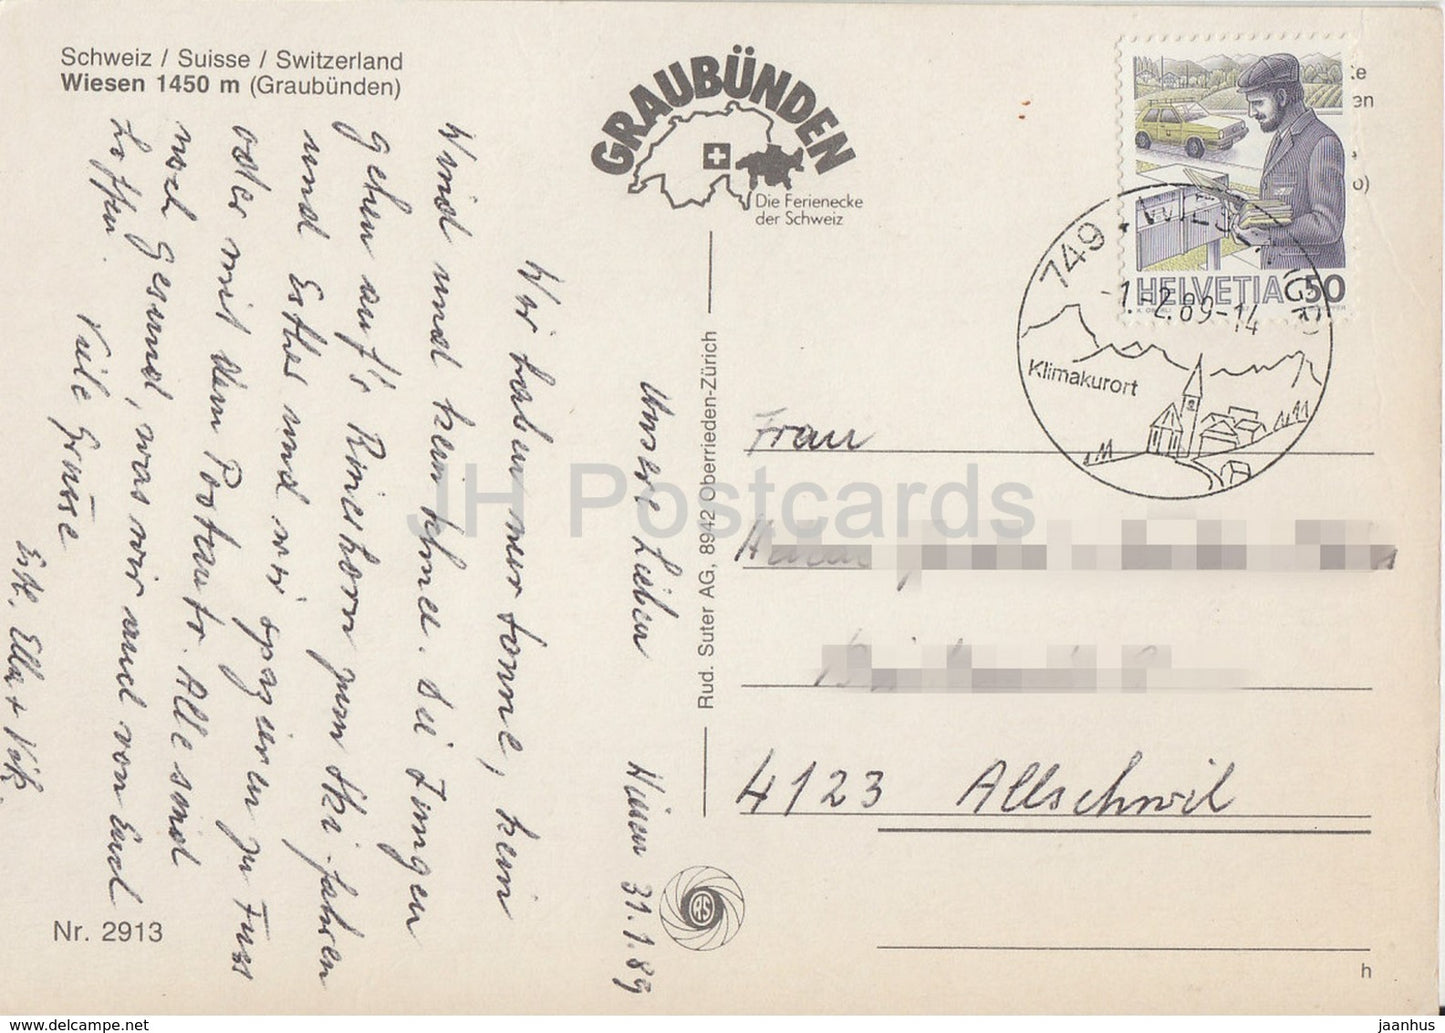 Schweiz / Suisse / Switzerland
Wiesen 1450 m (Graubünden)
GRAUBÜNDEN
Die Ferienecke
der Schweiz
HELVETIA 50
749 · WIESEN (GR)
-1.-2.89-14
Klimakurort
Unsere Lieben Wiesen 31.1.89
Wir haben nur Sonne, kein
Wind und kein Schnee. Die Jungen
gehen auf's Rinerhorn zum Ski-fahren
und Esther und wir spazieren zu Fuss
oder mit dem Postauto. Alle sind
noch gesund, was wir auch von Euch
hoffen. Viele Grüsse
Ella + Vik.
Rud. Suter AG, 8942 Oberrieden-Zürich
RS
Frau
4123 Allschwil
Nr. 2913
h
JH Postcards
www.delcampe.net
jaanhus